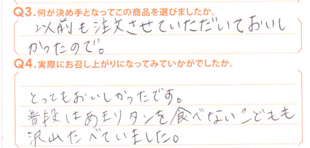 Q3.何が決め手となってこの商品を選びましたか。
以前も注文させていただいておいし
かったので。
Q4.実際にお召し上がりになってみていかがでしたか。
とってもおいしかったです。
普段はあまりタンを食べないこどもも
沢山たべていました。